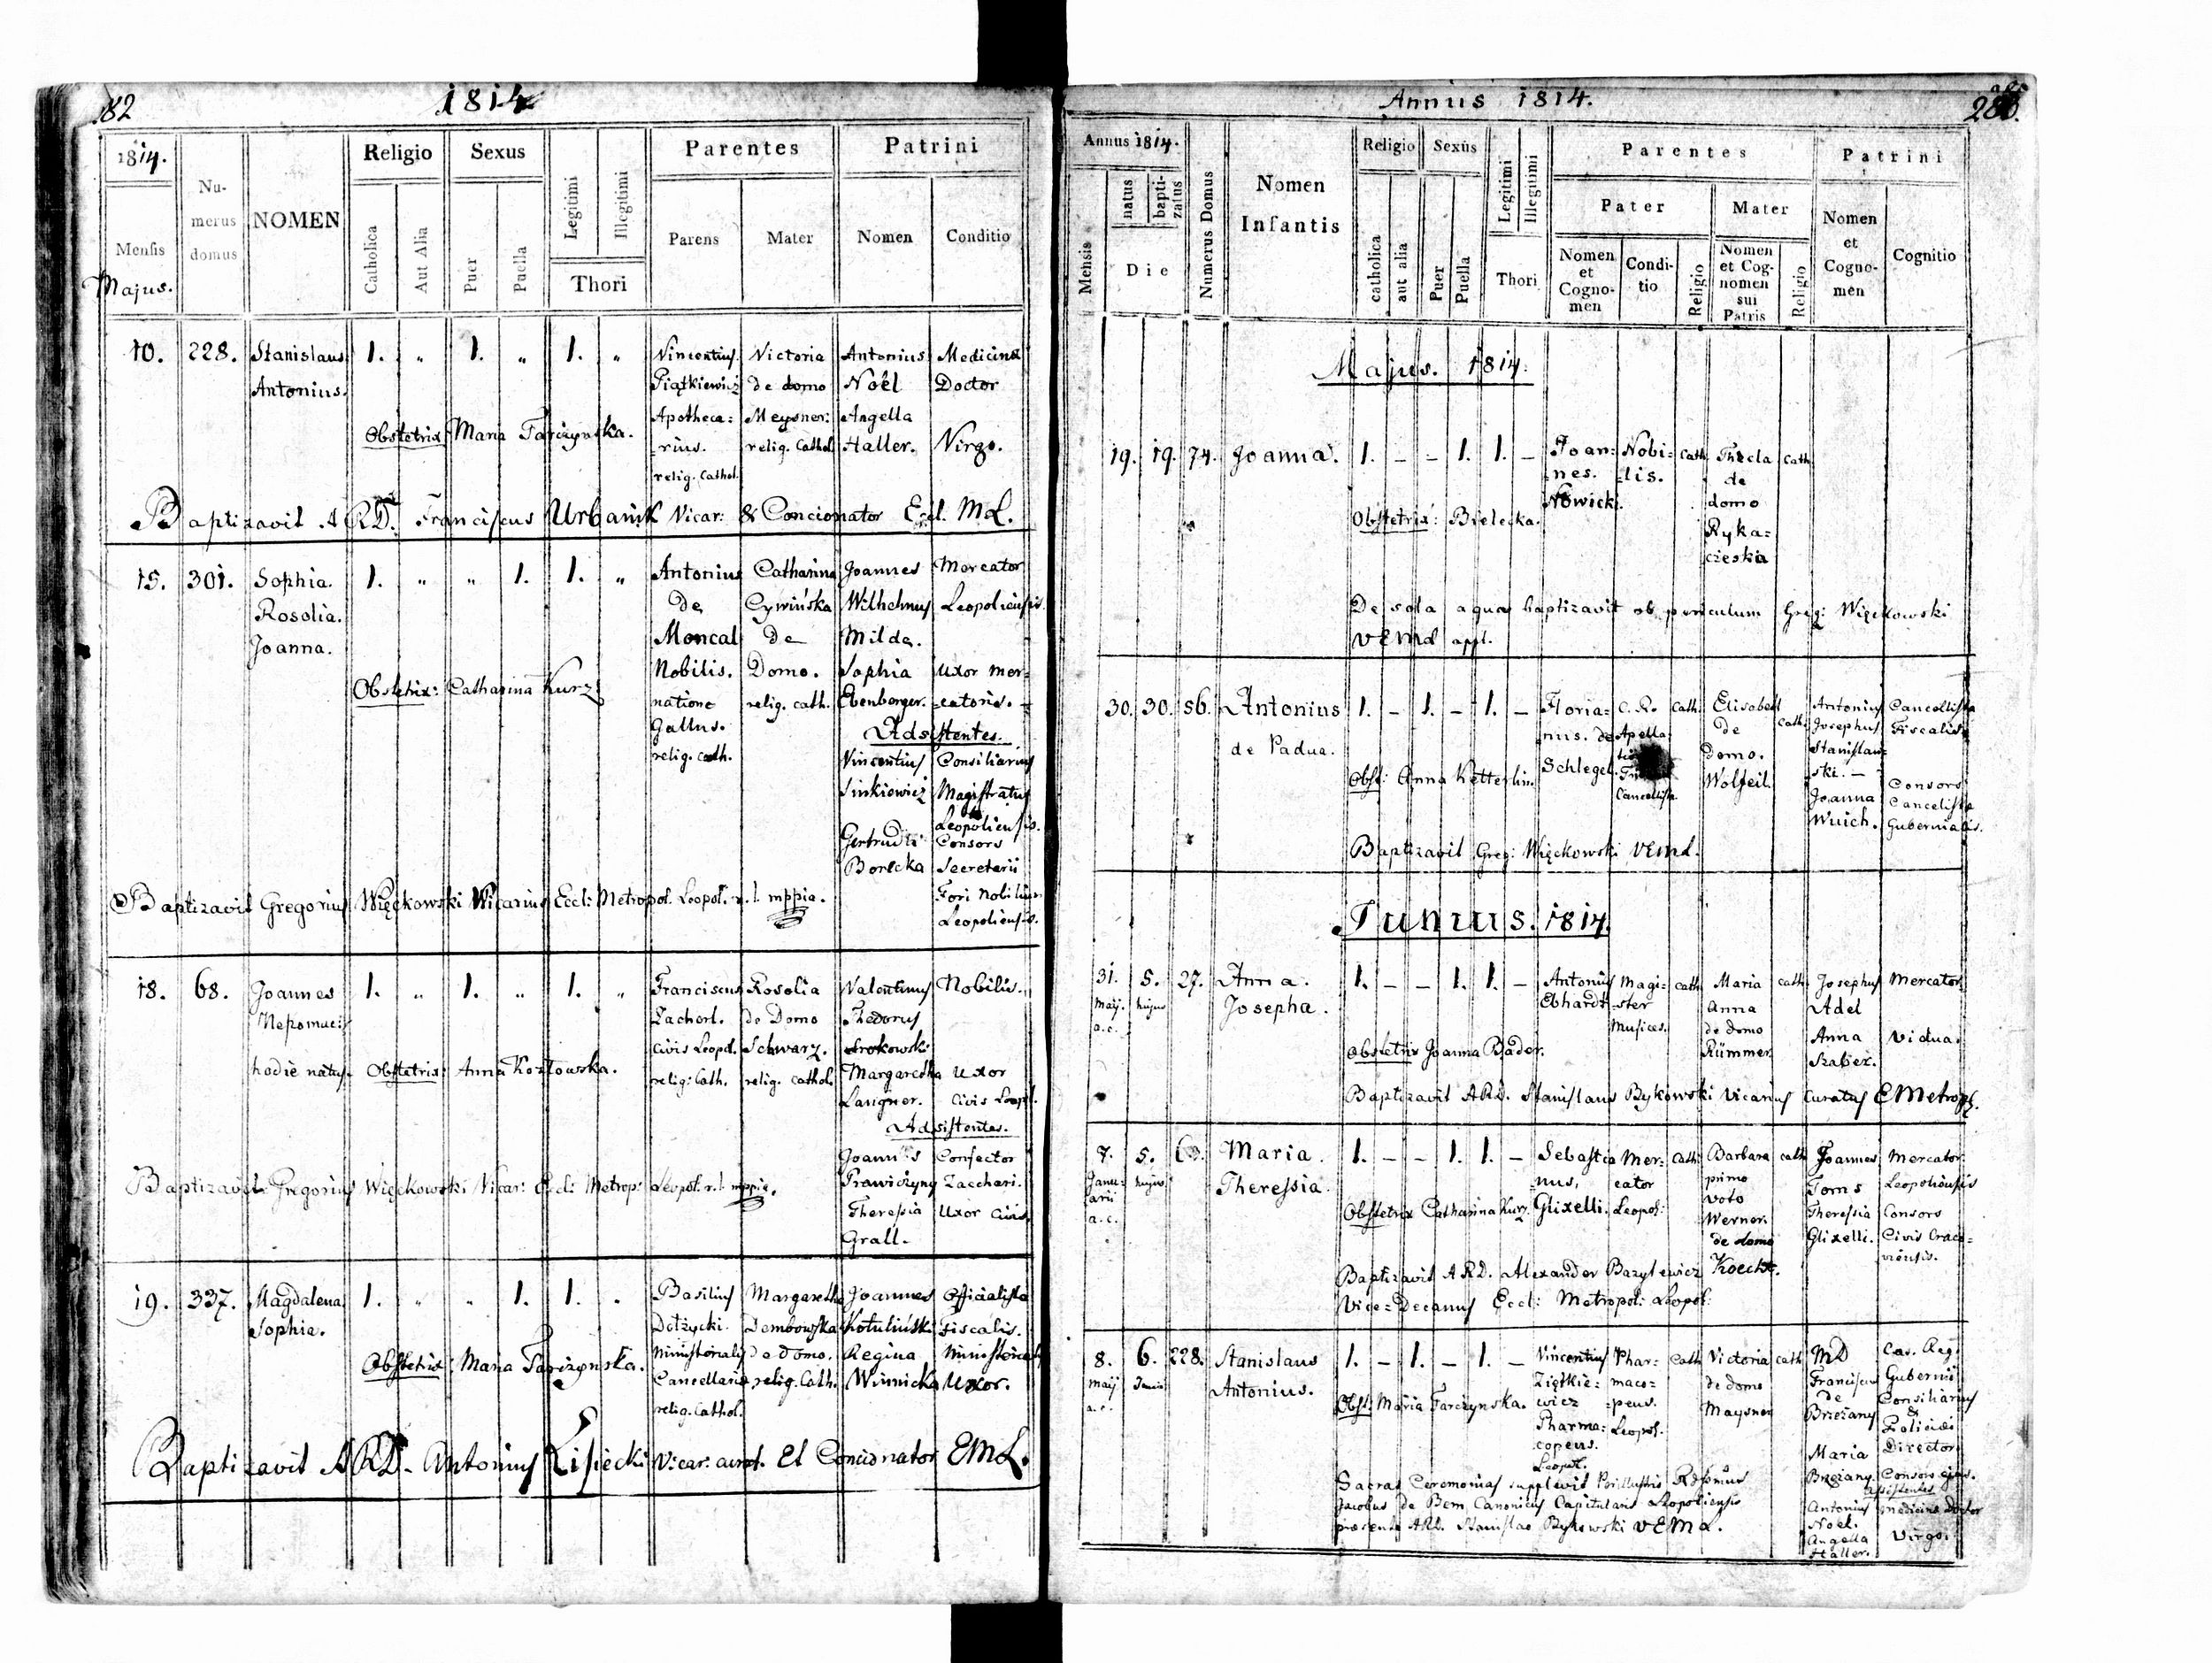 182
1814
1814.
Mensis
Majus.
Nu-
merus
domus
NOMEN
Religio
Catholica
Aut Alia
Sexus
Puer
Puella
Legitimi
Illegitimi
Thori
Parentes
Parens
Mater
Patrini
Nomen
Conditio
10. 228. Stanislaus 1. „ 1. „ 1. „ Vincentius Victoria Antonius Medicinæ
Antonius. Piątkiewicz de domo Noël Doctor
Apotheca= Meysner: Angella
Obstetrix Maria Tarczynska. =rius. relig. Cathol. Haller. Virgo.
relig. Cathol.
Baptizavit A RD. Franciscus Urbanik Vicar: & Concionator Eccl. ML.
15. 301. Sophia. 1. „ „ 1. 1. „ Antonius Catharina Joannes Mercator
Rosolia. de Cywińska Wilhelmus Leopoliensis.
Joanna. Moncal de Milde.
Nobilis. Domo. Sophia Uxor mer=
Obstetrix: Catharina Kurz natione relig. cath. Ebenberger. =catoris.
Gallus. Adsistentes.
relig. cath. Vincentius Consiliarius
Sinkiewicz Magistratus
Leopoliensis.
Gertrudis Consors
Borecka Secretarii
Baptizavit Gregorius Więckowski Vicarius Eccl: Metropol. Leopol. r. l. mppia. Fori Nobilium
Leopoliensis.
18. 68. Joannes 1. „ 1. „ 1. „ Franciscus Rosolia Valentinus Nobilis.
Nepomuc: Zacherl. de Domo Fredorus
Civis Leopol. Schwarz. Srokowski
hodie natus. Obstetrix: Anna Kozłowska. relig: Cath. relig. cathol. Margaretha Uxor
Langner. Civis Leopol.
Adsistentes.
Joannes Confector
Baptizavit Gregorius Więckowski Vicar: Eccl: Metrop: Leopol. r. l. mppia. Prawiczyny Zacchari.
Theresia Uxor Civis
Grall.
19. 337. Magdalena 1. „ „ 1. 1. „ Basilius Margaretha Joannes Officialista
Sophia. Dołzycki Dembowska Kotuliński Fiscalis.
Obstetrix: Maria Tarczynska. Ministerialis de Domo. Regina Ministerialis
Cancellariæ relig. Cath. Winnicka Uxor.
relig. Cathol.
Baptizavit A RD. Antonius Lisiecki Vicar: curat. Et Concionator EML.
Annus 1814.
Annus 1814.
Mensis
natus
bapti-
zatus
Die
Numerus Domus
Nomen
Infantis
Religio
catholica
aut alia
Sexus
Puer
Puella
Legitimi
Illegitimi
Thori
Parentes
Pater
Nomen
et
Cogno-
men
Condi-
tio
Religio
Mater
Nomen
et Cog-
nomen
sui
Patris
Religio
Patrini
Nomen
et
Cogno-
men
Cognitio
Majus. 1814.
19. 19. 74. Joanna. 1. – – 1. 1. – Joan= Nobi= cath Thecla cath
nes. =lis. de
Nowicki. domo
Obstetrix: Bielecka. Ryka=
czeskia
De sola aqua baptizavit ob periculum Greg: Więckowski
VEML appl.
30. 30. 56. Antonius 1. – 1. – 1. – Floria= C. R. cath. Elisabet cath. Antonius Cancellista
de Padua. nus. de Apella de Josephus Fiscalis
domo. Stanislaw=
Obst: Anna Ketterlin. Schlegel. Cancellista Wolfeil. ski. – Consors
Joanna Cancelista
Wuich. Gubernialis.
Baptizavit Greg: Więckowski VEML.
Junius. 1814.
31. 5. 27. Anna. 1. – – 1. 1. – Antonius Magi= cath Maria cath Josephus Mercator
Maij. hujus Josepha. Ebhardt =ster Anna Adel
a.c. Musices. de domo Anna Vidua.
Obstetrix Joanna Bader. Rümmer Szabez.
Baptizavit ARD. Stanislaus Bykowski Vicarius Curatus EMetropL.
7. 5. Maria. 1. – – 1. 1. – Sebastia Mer= Cath. Barbara cath Joannes Mercator
Janu= hujus Theressia. =nus, cator primo Toms Leopoliensis
arii Obstetrix Catharina Kurz. Glixelli. Leopol: voto Theresia Consors
a.c. Werner. Glixelli. Civis Craco=
de domo viensis.
Baptizavit ARD. Alexander Bazylewicz Koecht.
Vice=Decanus Eccl: Metropol: Leopol:
8. 6. 228. Stanislaus 1. – 1. – 1. – Vincentius Phar= Cath Victoria cath MD Cæs. Reg:
Maij Junii Antonius. Ziętkie= maco= de domo Franciscus Gubernii
a.c. Obst: Maria Tarczynska. wicz =peus. Maysner de Consiliarius
Pharma= Leopol. Brzezany &
copeus. Policiæ
Leopol. Maria Director
Sacras Ceremonias supplevit Perillustris RDomus Brzezany. Consors ejus.
Jacobus de Bem, Canonicus Capitularis Leopoliensis Assistentes
præsente ARD. Stanislao Bykowski VEML. Antonius Medicinæ Doctor
Noël.
Angella Virgo.
Haller.